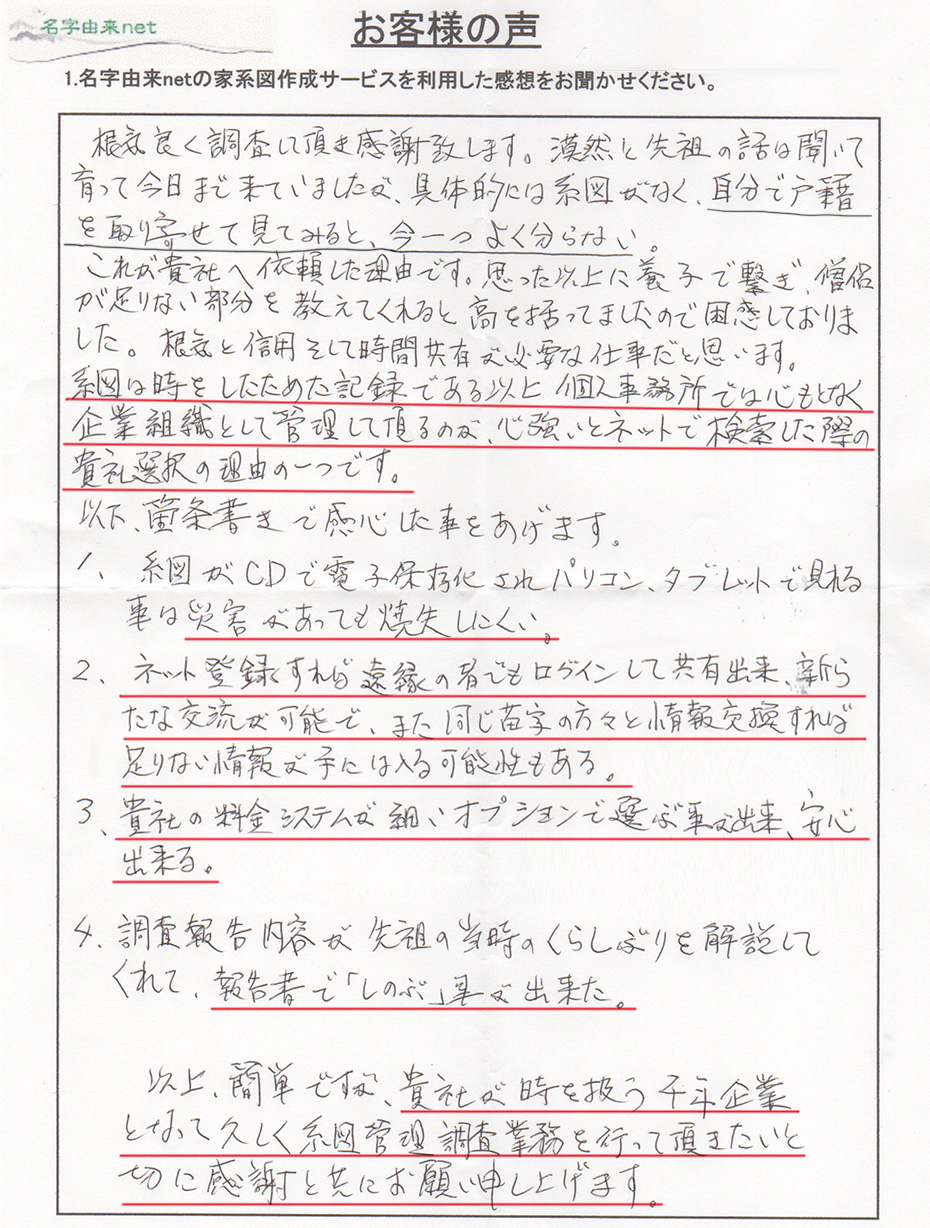 名字由来net
お客様の声
1.名字由来netの家系図作成サービスを利用した感想をお聞かせください。
根気良く調査して頂き感謝致します。漠然と先祖の話は聞いて
育って今日まで来ていましたが、具体的には系図がなく、自分で戸籍
を取り寄せて見てみると、今一つよく分らない。
これが貴社へ依頼した理由です。思った以上に養子で繋ぎ、僧侶
が足りない部分を教えてくれると高を括ってましたので困惑しておりま
した。根気と信用そして時間共有が必要な仕事だと思います。
系図は時をしたためた記録である以上個人事務所では心もとなく
企業組織として管理して頂るのが、心強いとネットで検索した際の
貴社選択の理由の一つです。
以下、箇条書きで感心した事をあげます。
1、系図がCDで電子保存化されパソコン、タブレットで見れる
事は災害があっても焼失しにくい。
2、ネット登録すれば遠縁の者でもログインして共有出来、新ら
たな交流が可能で、また同じ苗字の方々と情報交換すれば
足りない情報が手には入る可能性もある。
3、貴社の料金システムが細いオプションで選ぶ事が出来、安心
出来る。
4、調査報告内容が先祖の当時のくらしぶりを解説して
くれて、報告書で「しのぶ」事が出来た。
以上、簡単ですが、貴社が時を扱う千年企業
となって久しく系図管理調査業務を行って頂きたいと
切に感謝と共にお願い申し上げます。